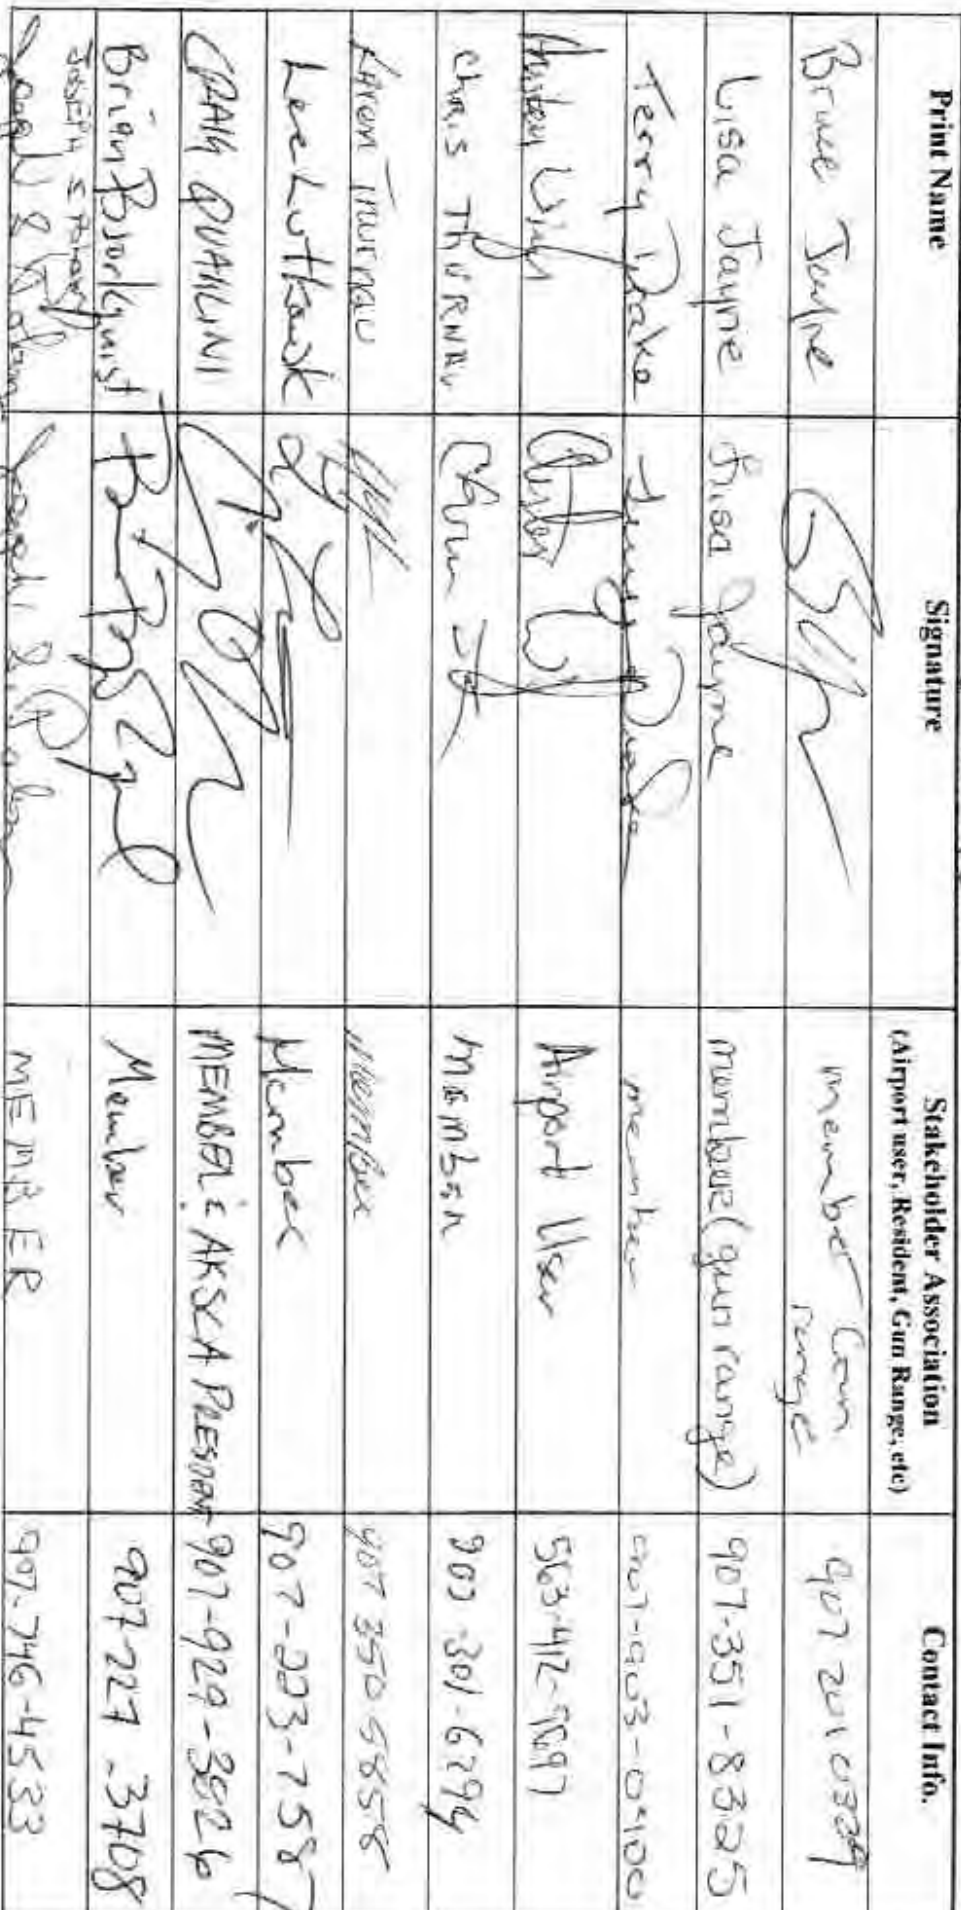 Print Name Signature Stakeholder Association Contact Info.
(Airport user, Resident, Gun Range, etc)
Bruce Jayne member Gun range 907 201 0329
Lisa Jayne Lisa Jayne member (gun range) 907-351-8325
Terry Drake Terry Drake member 907-903-0400
Airport User 563-412-
Chris THURNAU Chris member 907-301-6294
Karen Thurnau member 907 350 5858
Lee Lutkowsk Member 907-223-7587
CRAIG QUALINI MEMBER & AKSCA PRESIDENT 907-929-3826
Brian Bjorkquist Member 907-227-3708
JOSEPH Joseph MEMBER 907-746-4533